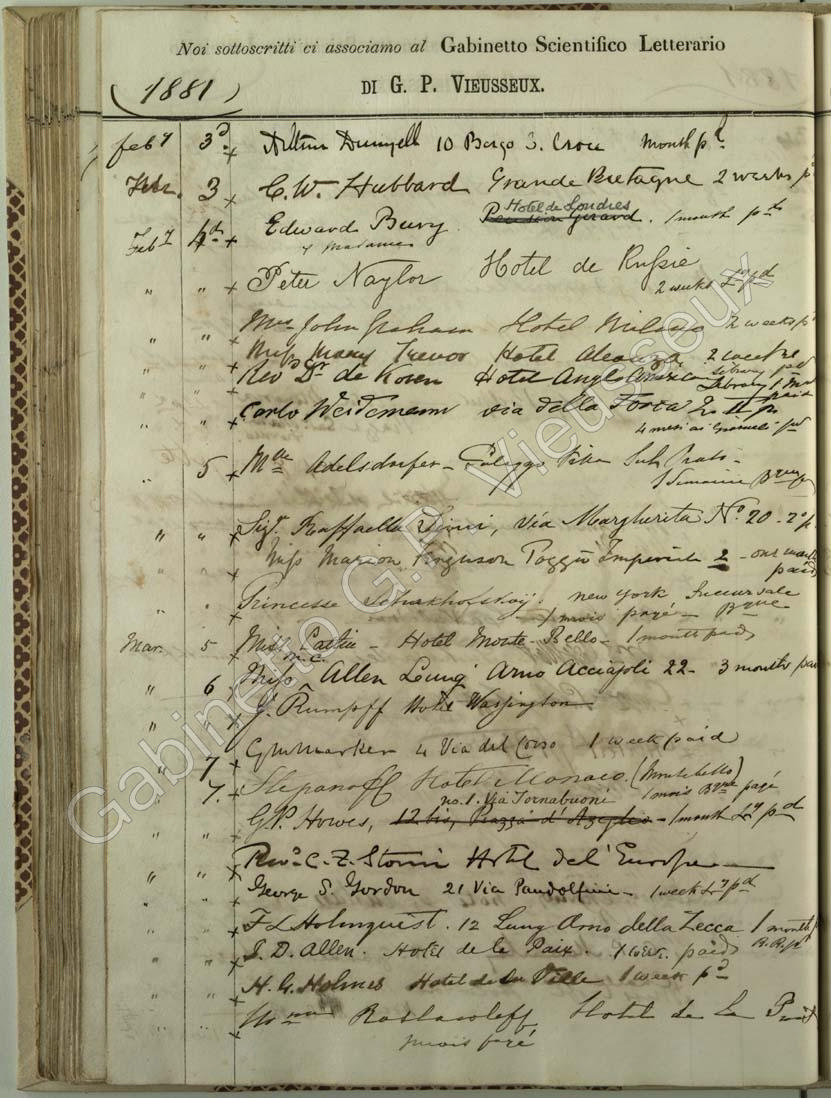 Noi sottoscritti ci associamo al Gabinetto Scientifico Letterario
DI G. P. VIEUSSEUX.
(1881)
feby 3d Arthur 10 Borgo S. Croce month pd
Feb. 3 C. W. Hubbard Grande Bretagne 2 weeks pd
Hotel de Londres
Feby 4th Edward Bury Pension Girard. 1 month pd
& Madame
" " Peter Naylor Hotel de Russie
2 weeks Ly pd
" " Mrs John Graham Hotel Milano 2 weeks pd
Miss Mary Trevor Hotel 2 weeks
Revd Dr de Koven Hotel Anglo American Library
Library 1 paid
" " Carlo Weidemann via della
4 mesi ai Giornali pd
" 5 Mlle Adelsdorfer - Palazzo
1 Semaine Bque
" " Sigra Raffaella via Margherita No. 20 -
" " Miss Marion Ferguson Poggio Imperiale 2 - one month
paid
" " Princesse Schakhofskoy, New York Succursale
1 mois payé - Bque
Mar. 5 Miss - Hotel Monte-Bello - 1 month paid
M.C.
" 6 Miss Allen Lung' Arno Acciajoli 22 - 3 months paid
" " J. Rumpff Hotel Washington
" 7 4 Via del Corso 1 week paid
" 7. Stepanoff Hotel Monaco. (Montebello)
1 mois Bque payé
no. 1. Via Tornabuoni
" " G.P. Howes, 12 bis, Piazza d'Azeglio - 1 month Ly pd
" " Revd C. Z. Hotel del' Europe
" " George S. Gordon 21 Via Pandolfini - 1 week Ly pd
" " F L Holmquist. 12 Lung Arno della Zecca 1 month
" " S. D. Allen. Hotel de la Paix. 1 week. paid
" " H. G. Holmes Hotel de la Ville 1 week pd
" " Hotel de la Paix
Gabinetto G.P. Vieusseux